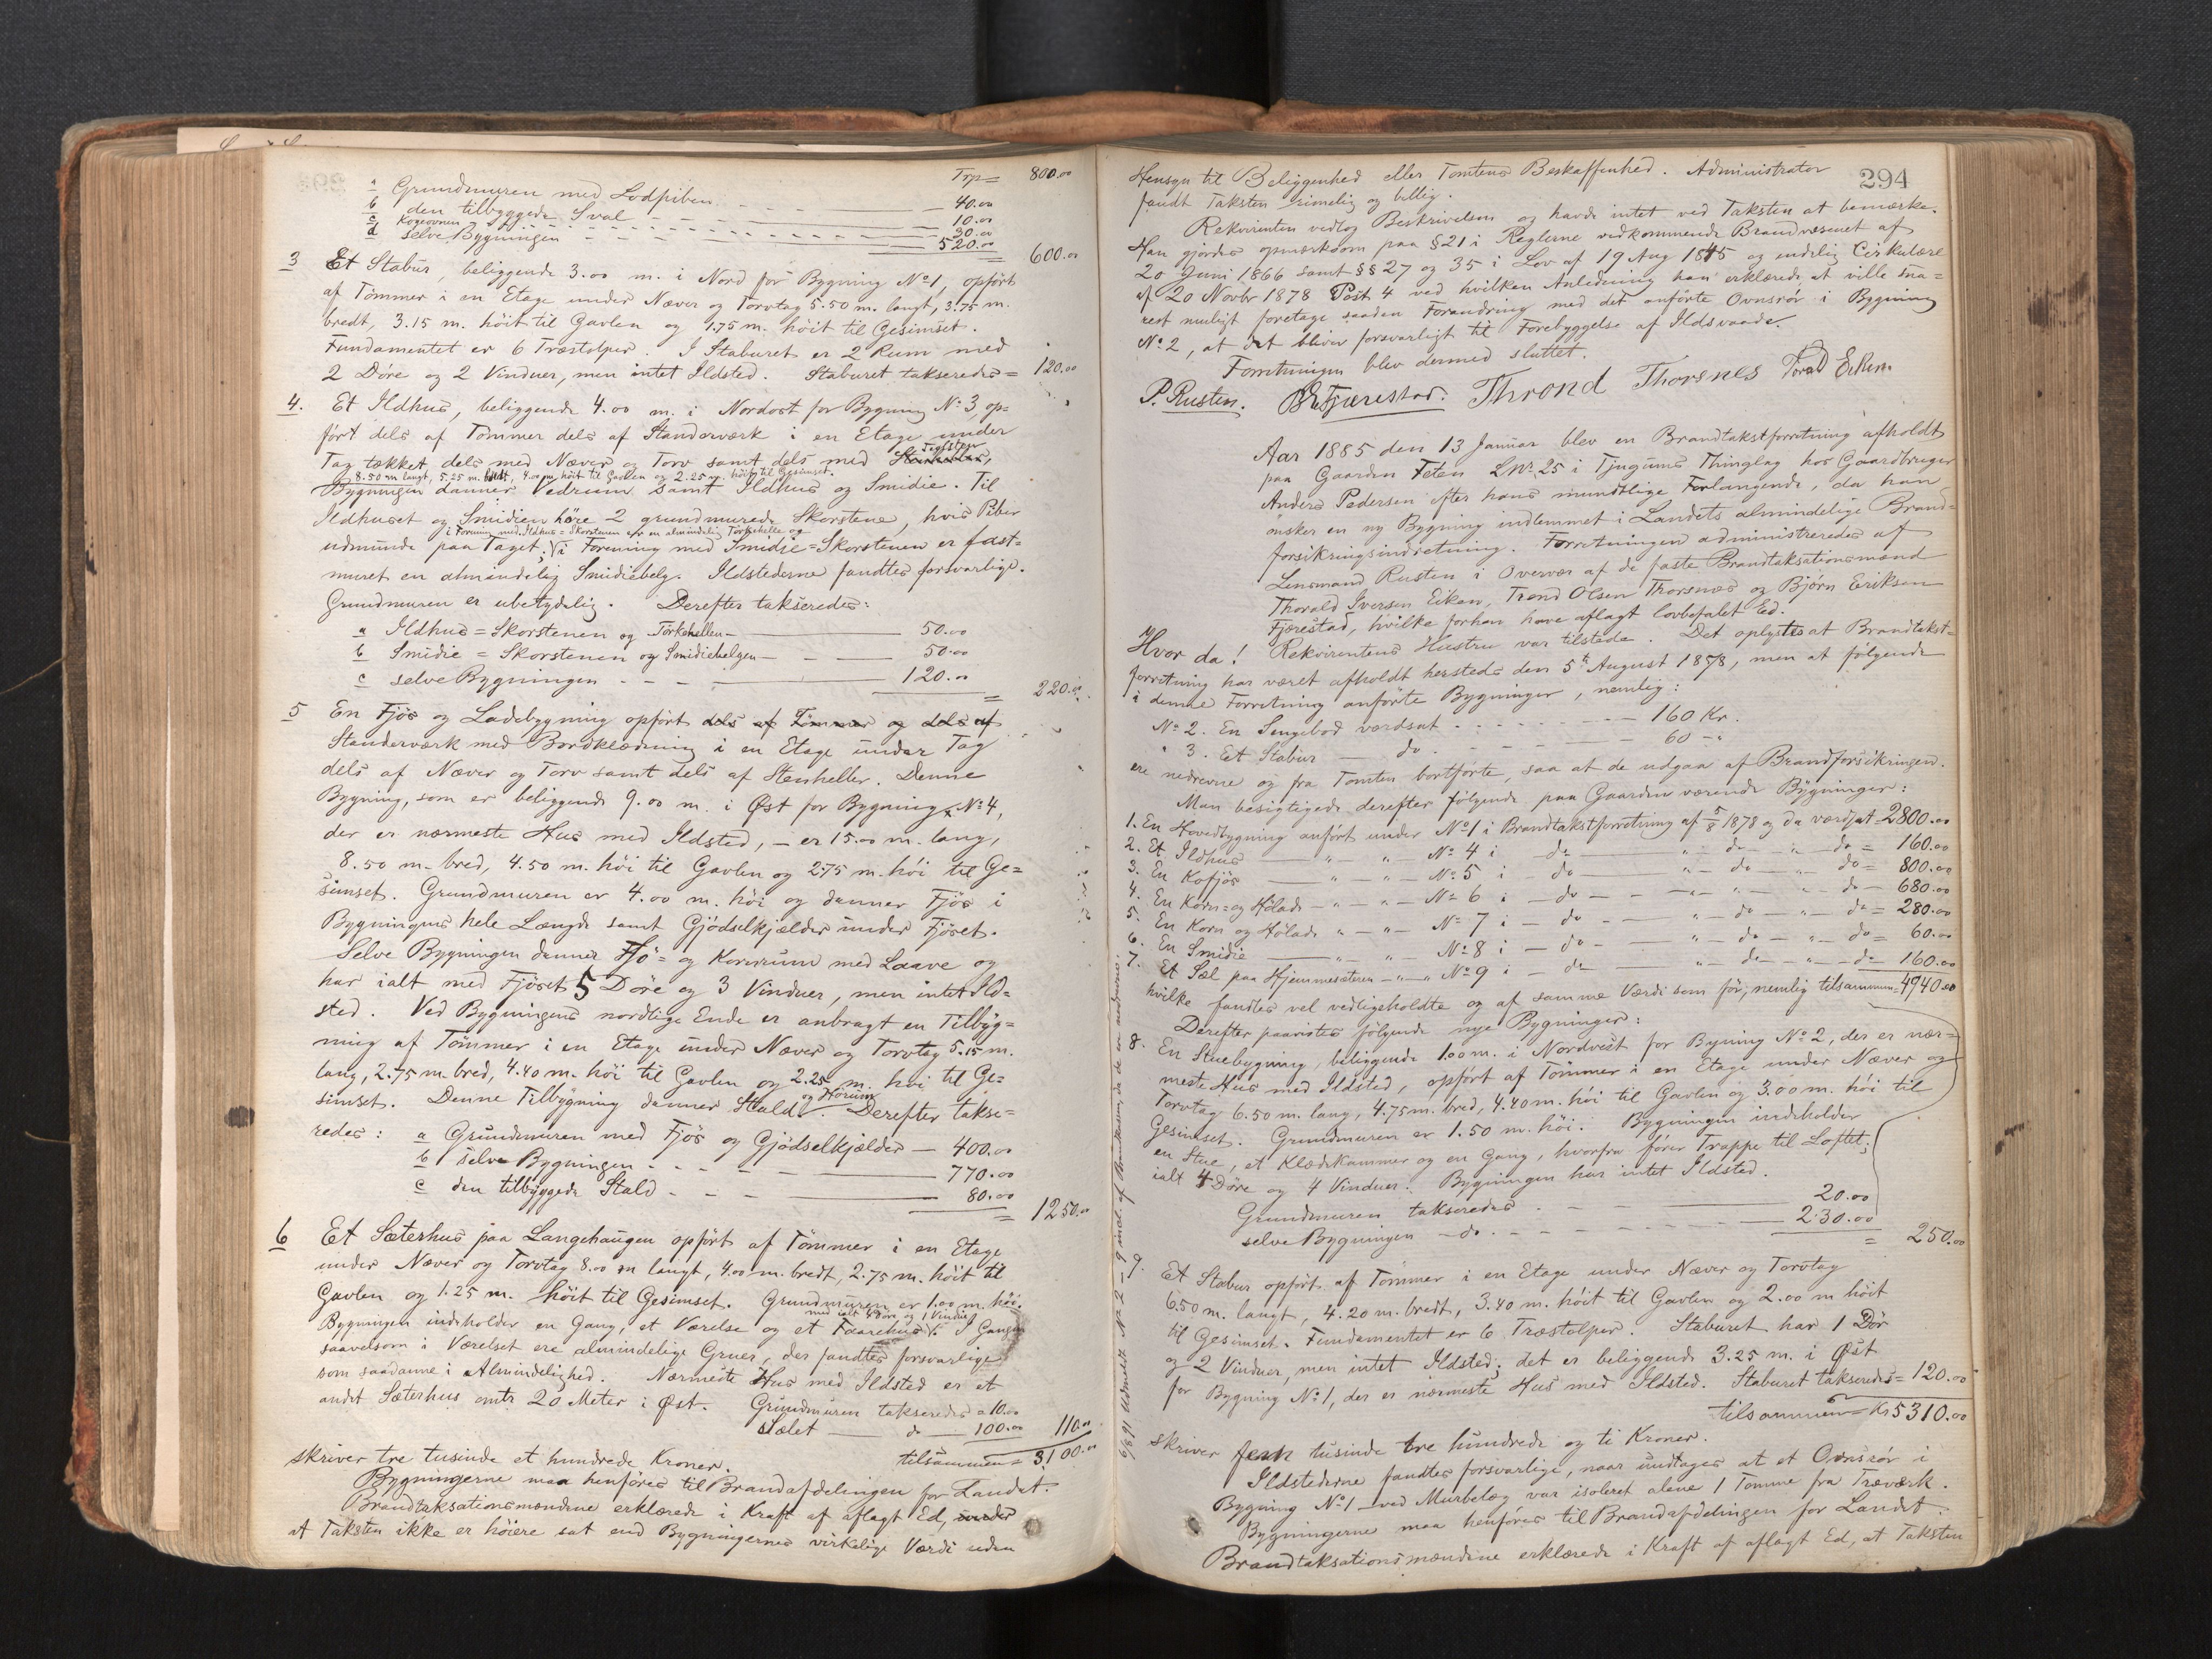 Trp = 800.00
a Grundmuren med Lodpiben - - - 40.00
b den tilbyggede Sval - - - 10.00
c Kogeovnen - - - 30.00
d selve Bygningen - - - 520.00
= 600.00
3 Et Stabur, beliggende 3.00 m. i Nord for Bygning No 1, opført
af Tømmer i en Etage under Næver og Torvtag 5.50 m. langt, 3.75 m.
bredt, 3.15 m. höit til Gavlen og 1.75 m. höit til Gesimset.
Fundamentet er 6 Træstolper. I Staburet er 2 Rum med
2 Döre og 2 Vinduer, men intet Ildsted. Staburet takseredes = 120.00
4. Et Ildhus, beliggende 4.00 m. i Nordost for Bygning No 3, op=
ført dels af Tömmer dels af Standerværk i en Etage under
Tag tækket dels med Næver og Torv samt dels med Tagsten
8.50 m langt, 5.25 m. bredt, 4.00 m. höit til Gavlen og 2.25 m. höit til Gesimset.
Bygningen danner Vedrum samt Ildhus og Smidie. Til
Ildhuset og Smidien höre 2 grundmurede Skorstene, hvis Piber
i Forening med Ildhus=Skorstenen er en almindelig Törkehelle og
udmunde paa Taget; i Forening med Smidie=Skorstenen er fast=
muret en almindelig Smidiebelg. Ildstederne fandtes forsvarlige.
Grundmuren er ubetydelig. Derefter takseredes:
a Ildhus=Skorstenen og Törkehellen - 50.00
b Smidie=Skorstenen og Smidiebelgen - - 50.00
c selve Bygningen - - - 120.00
= 220.00
5 En Fjös og Ladebygning opført dels af Tömmer og dels af
Standerværk med Bordklædning i en Etage under Tag
dels af Næver og Torv samt dels af Stenheller. Denne
Bygning, som er beliggende 9.00 m. i Øst for Bygning No 4,
der er nærmeste Hus med Ildsted, - er 15.00 m. lang,
8.50 m. bred, 4.50 m. höi til Gavlen og 2.75 m. höi til Ge=
simset. Grundmuren er 4.00 m. höi og danner Fjös i
Bygningens hele Længde samt Gjödselkjælder under Fjöset.
Selve Bygningen danner Hö= og Kornrum med Laave og
har ialt med Fjöset 5 Döre og 3 Vinduer, men intet Ild=
sted. Ved Bygningens nordlige Ende er anbragt en Tilbyg=
ning af Tömmer i en Etage under Næver og Torvtag 5.15 m.
lang, 2.75 m. bred, 4.40 m. höi til Gavlen og 2.25 m. höi til Ge=
og Hörum
simset. Denne Tilbygning danner Stald. Derefter takse=
redes: a Grundmuren med Fjös og Gjödselkjælder - 400.00
b selve Bygningen - - - 770.00
c den tilbyggede Stald - - - 80.00
= 1250.00
6 Et Sæterhus paa Langehaugen opført af Tömmer i en Etage
under Næver og Torvtag 8.00 m langt, 4.00 m. bredt, 2.75 m. höit til
Gavlen og 1.25 m. höit til Gesimset. Grundmuren er 1.00 m. höi.
med ialt 4 Döre og 1 Vindu
Bygningen indeholder en Gang, et Værelse og et Faarehus. I Gangen
saavelsom i Værelset ere almindelige Gruer, der fandtes forsvarlige
som saadanne i Almindelighed. Nærmeste Hus med Ildsted er et
andet Sæterhus omtr 20 Meter i Øst. Grundmuren takseredes = 10.00
Sælet - do - 100.00 110.00
tilsammen = 3100.00
skriver tre tusinde et hundrede Kroner.
Bygningerne maa henføres til Brandafdelingen for Landet.
Brandtaksationsmændene erklærede i Kraft af aflagt Ed, under
at Taksten ikke er höiere sat end Bygningernes virkelige Værdi uden
294
Hensyn til Beliggenhed eller Tomtens Beskaffenhed. Administrator
fandt Taksten rimelig og billig.
Rekvirenten vedtog Beskrivelsen og havde intet ved Taksten at bemærke.
Han gjordes opmærksom paa § 21 i Reglerne vedkommende Brandvæsenet af
20 Juni 1866 samt §§ 27 og 35 i Lov af 19 Aug 1845 og endelig Cirkulære
af 20 Novbr 1878 Post 4 ved hvilken Anledning han erklærede at ville sna=
rest muligt foretage saadan Forandring med det anførte Ovnsrör i Bygning
No 2, at det bliver forsvarligt til Forebyggelse af Ildsvaade.
Forretningen blev dermed sluttet.
P. Rusten. B E Fjærestad. Thrond Thorsnes Torald Eiken.
Aar 1885 den 13 Januar blev en Brandtakstforretning afholdt
paa Gaarden Feten LNr. 25 i Tjugums Thinglag hos Gaardbruger
Anders Pedersen efter hans mundtlige Forlangende, da han
ønsker en ny Bygning indlemmet i Landets almindelige Brand=
forsikringsindretning. Forretningen administreredes af
Lensmand Rusten i Overvær af de faste Brandtaksationsmænd
Thorald Iversen Eiken, Trond Olsen Thorsnæs og Björn Eeriksen
Fjærestad, hvilke forhen have aflagt lovbefalet Ed.
Hvor da! Rekvirentens Hustru var tilstede. Det oplystes at Brandtakst=
forretning har været afholdt hersteds den 5te August 1878, men at følgende
i denne Forretning anførte Bygninger, nemlig:
No 2. En Sengebod værdsat - - - 160 Kr.
" 3. Et Stabur - do. - - 60 - "
ere nedrevne og fra Tomten bortførte, saa at de udgaa af Brandforsikringen.
Man besigtigede derefter følgende paa Gaarden værende Bygninger:
1. En Hovedbygning anført under No 1 i Brandtakstforretning af 5/8 1878 og da værdsat = 2800.00
2. Et Ildhus - " - " - No 4 i - do - " - do - " - do = 160.00
3. En Kofjös - " - " - No 5 i - do - " - do - " - do = 800.00
4. En Korn= og Hölade - " - " - No 6 i - do - " - " - do - 680.00
5. En Korn og Hölade " - " - No 7 i - do - " - do - " - do = 280.00
6. En Smidie - " - " - No 8 i - do - " - do - " - do = 60.00
7. Et Sæl paa Hjemmesæteren - " - " No 9 i - do - " - do - " - do = 160.00
hvilke fandtes vel vedligeholdte og af samme Værdi som før, nemlig tilsammen = 4940.00
Derefter paavistes følgende nye Bygninger:
8. En Stuebygning, beliggende 1.00 m. i Nordvest for Bygning No 2, der er nær=
meste Hus med Ildsted, opført af Tömmer i en Etage under Næver og
Torvtag 6.50 m. lang, 4.75 m. bred, 4.40 m. höi til Gavlen og 3.00 m. höi til
Gesimset. Grundmuren er 1.50 m. höi. Bygningen indeholder
en Stue, et Klædekammer og en Gang, hvorfra fører Trappe til Loftet;
ialt 4 Döre og 4 Vinduer. Bygningen har intet Ildsted.
Grundmuren takseredes - - - 20.00
selve Bygningen - do - - - 230.00
= 250.00
9. Et Stabur opført af Tömmer i en Etage under Næver og Torvtag
6.50 m. langt, 4.20 m. bredt, 3.40 m. höit til Gavlen og 2.00 m höit
til Gesimset. Fundamentet er 6 Træstolper. Staburet har 1 Dör
og 2 Vinduer, men intet Ildsted; det er beliggende 3.25 m. i Øst
for Bygning No 1, der er nærmeste Hus med Ildsted. Staburet takseredes = 120.00
tilsammen = Kr 5310.00
skriver fem tusinde tre hundrede og ti Kroner.
Ildstederne fandtes forsvarlige, naar undtages at et Ovnsrör i
Bygning No 1 ved Murbelæg var isoleret alene 1 Tomme fra Træværk.
Bygningerne maa henføres til Brandafdelingen for Landet.
Brandtaksationsmændene erklærede i Kraft af aflagt Ed, at Taksten
6/8 91 Udmeldt No 2 - 9 incl. af Brandkassen, da de ere nedrevne.